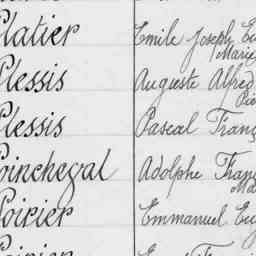 Platier Emile Joseph Eu
Marie
Plessis Auguste Alfred
Plessis Pascal Franç
Poinchegal Adolphe Franç
Ma
Poirier Emmanuel Eug